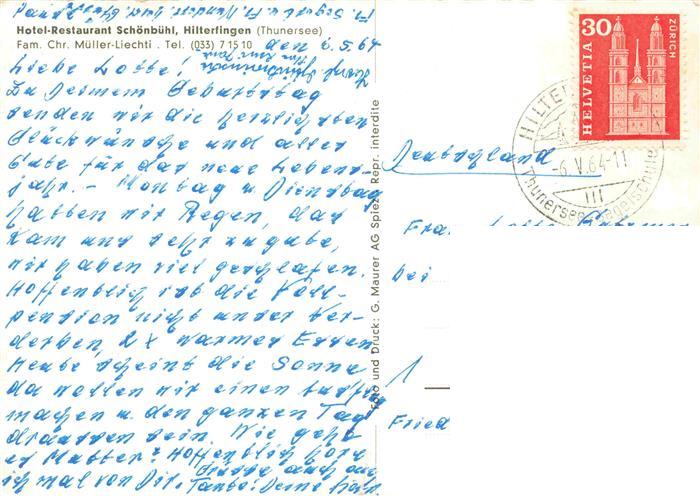 Hotel-Restaurant Schönbühl, Hilterfingen (Thunersee)
Fam. Chr. Müller-Liechti . Tel. (033) 7 15 10
den 6.5.64
Liebe Lotte!
Zu Deinem Geburtstag
senden wir die herzlichsten
Glückwünsche und alles
Gute für das neue Lebens-
jahr. – Montag u. Dienstag
hatten wir Regen, das
kam uns sehr zugute,
wir haben viel geschlafen.
Hoffentlich ist die Voll-
pension nicht unser Ver-
derben, 2x warmes Essen.
Heute scheint die Sonne
da wollen wir einen
machen u. den ganzen Tag
draussen sein. Wie geht
es Mutter? Hoffentlich hört
ich mal von Dir.
Grüsse auch an
Tante! Deine
Foto und Druck: G. Maurer AG Spiez Repr. interdite
30
HELVETIA
ZÜRICH
HILTE
-6.V.64-11
Thunersee Segelschule
Deutschland
Frau Lotte
bei
1
Fried